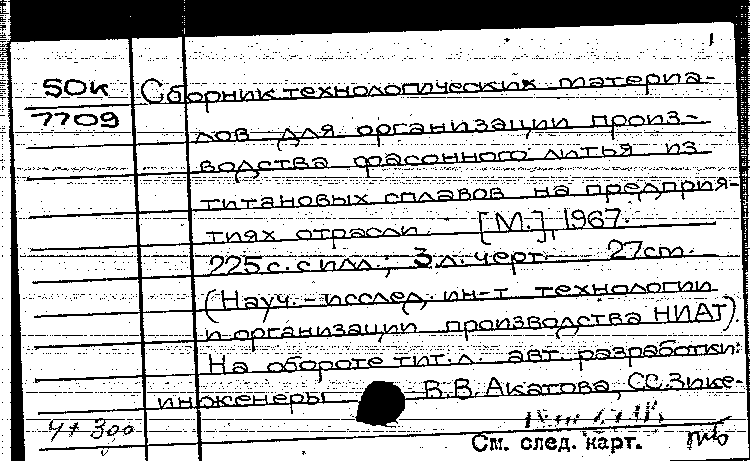 1
50к Сборник технологических материа-
7709 лов для организации произ-
водства фасонного литья из
титановых сплавов на предприя-
тиях отрасли. [М.], 1967.
225 с. с илл.; 3 л. черт. 27 см.
(Науч.-исслед. ин-т технологии
и организации производства НИАТ).
На обороте тит. л. авт. разработки:
инженеры В.В. Акатова, С.С. Зике-
4+ 300
См. след. карт.